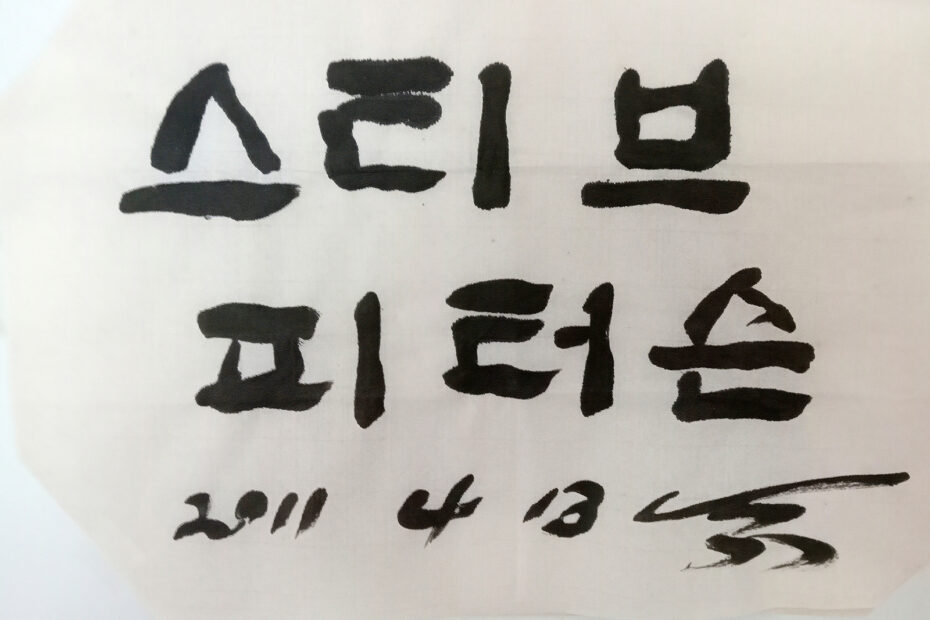 스티브
피터슨
2011 4 13